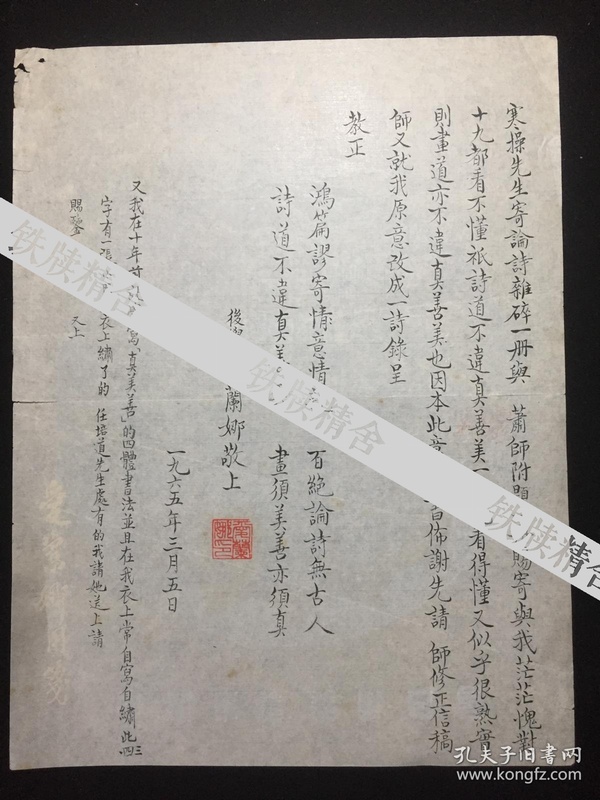 寒操先生寄論詩雜碎一册與 蕭師附題 賜寄與我茫茫愧對
十九都看不懂祇詩道不違真善美一 看得懂又似乎很熟實
則畫道亦不違真善美也因本此意 佈謝先請 師修正信稿
師又就我原意改成一詩錄呈
教正
鴻篇謬寄情意情 百絕論詩無古人
詩道不違真美 畫須美善亦須真
後學 蘭娜敬上
一九六五年三月五日
又我在十年前 寫「真美善」的四體書法並且在我衣上常自寫自繡此三四
字有一張 衣上繡了的 任培道先生處有的我請她送上請
賜鑒 又上
铁牍精舍
铁牍精舍
铁牍精舍
孔夫子旧书网
www.kongfz.com